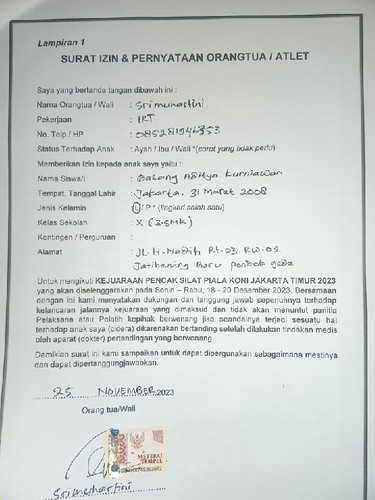 Lampiran 1
SURAT IZIN & PERNYATAAN ORANGTUA / ATLET
Saya yang bertanda tangan dibawah ini :
Nama Orangtua / Wali : Srimuhartini
Pekerjaan : IRT
No. Telp / HP : 085281946353
Status Terhadap Anak : Ayah / Ibu / Wali *(corot yang tidak perlu)
Memberikan Izin kepada anak saya yaitu :
Nama Siswa/i : Galang Aditya Kurniawan
Tempat, Tanggal Lahir : Jakarta, 31 Maret 2008
Jenis Kelamin : L / P * (lingkari salah satu)
Kelas Sekolah : X (SMK)
Kontingen / Perguruan :
Alamat : JL. H. Nadih Rt. 03 RW. 02
Jatibening Baru pondok gede
Untuk mengikuti KEJUARAAN PENCAK SILAT PIALA KONI JAKARTA TIMUR 2023
yang akan diselenggarakan pada Senin – Rabu, 18 - 20 Desember 2023. Bersamaan
dengan ini kami menyatakan dukungan dan tanggung jawab sepenuhnya terhadap
kelancaran jalannya kejuaraan yang dimaksud dan tidak akan menuntut panitia
Pelaksana atau Pelatih kepihak berwenang jika seandainya terjadi sesuatu hal
terhadap anak saya (cidera) dikarenakan bertanding setelah dilakukan tindakan medis
oleh aparat (dokter) pertandingan yang berwenang
Demikian surat ini kami sampaikan untuk dapat dipergunakan sebagaimana mestinya
dan dapat dipertanggungjawabkan.
25 NOVEMBER 2023
Orang tua/Wali
METERAI
TEMPEL
Srimuhartini